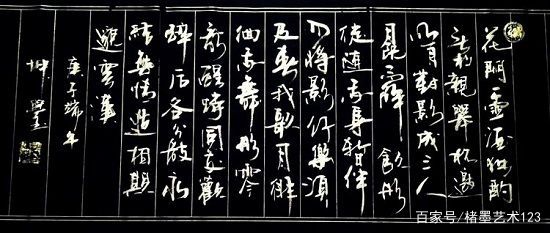 花間一壺酒獨酌
無相親舉杯邀
明月對影成三人
月既不解飲影
徒隨我身暫伴
月將影行樂須
及春我歌月徘
徊我舞影零
亂醒時同交歡
醉后各分散永
結無情遊相期
邈雲漢
庚子端午
百家号/楮墨艺术123